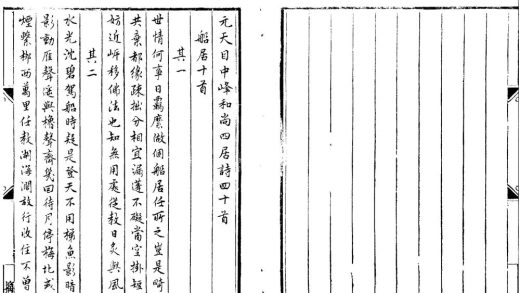 元天目中峰和尚四居詩四十首
船居十首
其一
世情何事日羈縻做個船居任所之豈是畸
共棄都緣疎拙分相宜漏蓬不礙當空掛短
妨近岸移佛法也知無用處從教日炙與風
其二
水光沈碧駕船時疑是登天不用梯魚影暗
影動雁聲遙與櫓聲齊幾回待月停梅北或
煙繫栁西萬里任教湖海濶放行收住不曾